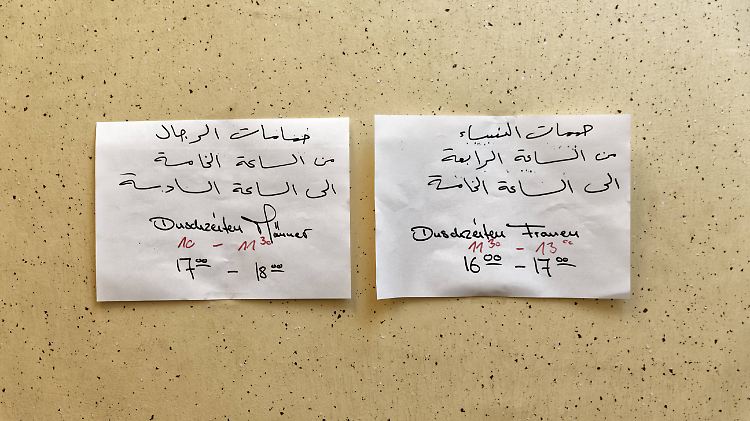 حمامات الرجال
من الساعة الخامسة
الى الساعة السادسة
Duschzeiten Männer
10 - 11 30
17 00 - 18 00
حممات النساء
من الساعة الرابعة
الى الساعة الخامسة
Duschzeiten Frauen
11 30 - 13 00
16 00 - 17 00